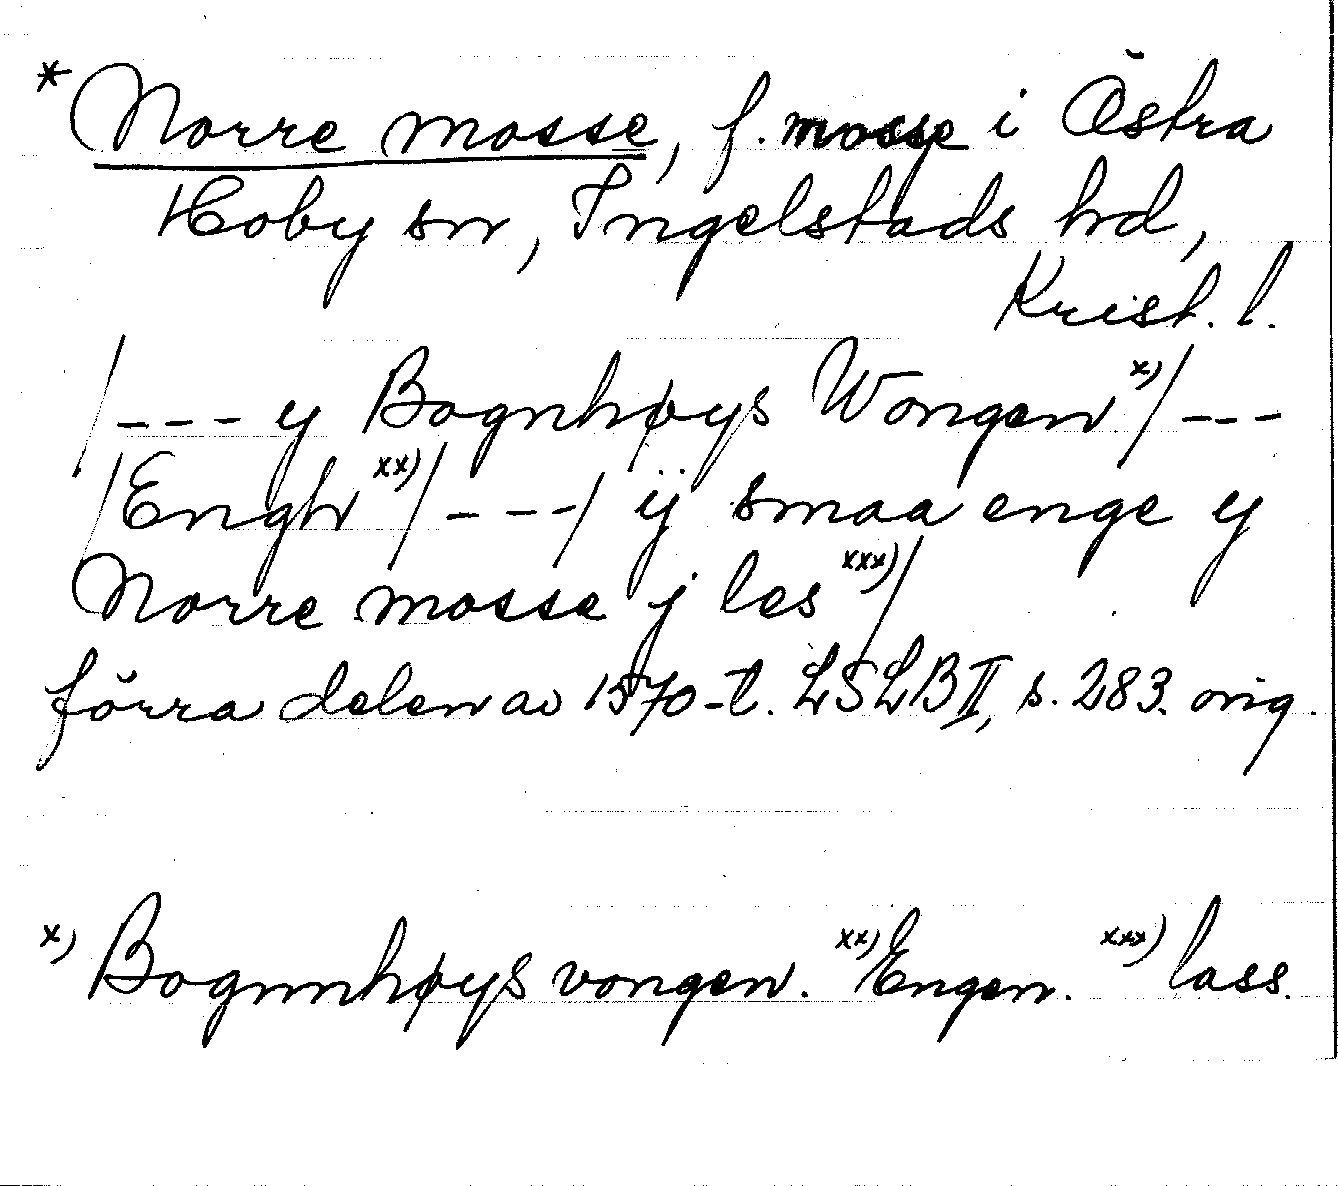 * Norre mosse, f. mosse i Östra
Hoby sn, Ingelstads hd,
Krist. l.
/--- y Bognhøys Wongen x)/ ---
/Engh xx)/ ---/ ij smaa enge y
Norre mosse j les xxx)/
förra delen av 1570-t. LSLB II, s. 283. orig.
x) Bognnhøys vongen. xx) Engen. xxx) lass.